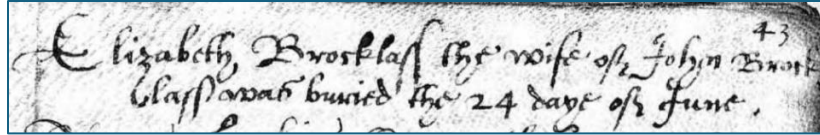 43
Elizabeth Brocklass the wife of John Brock
blass was buried the 24 daye of June.